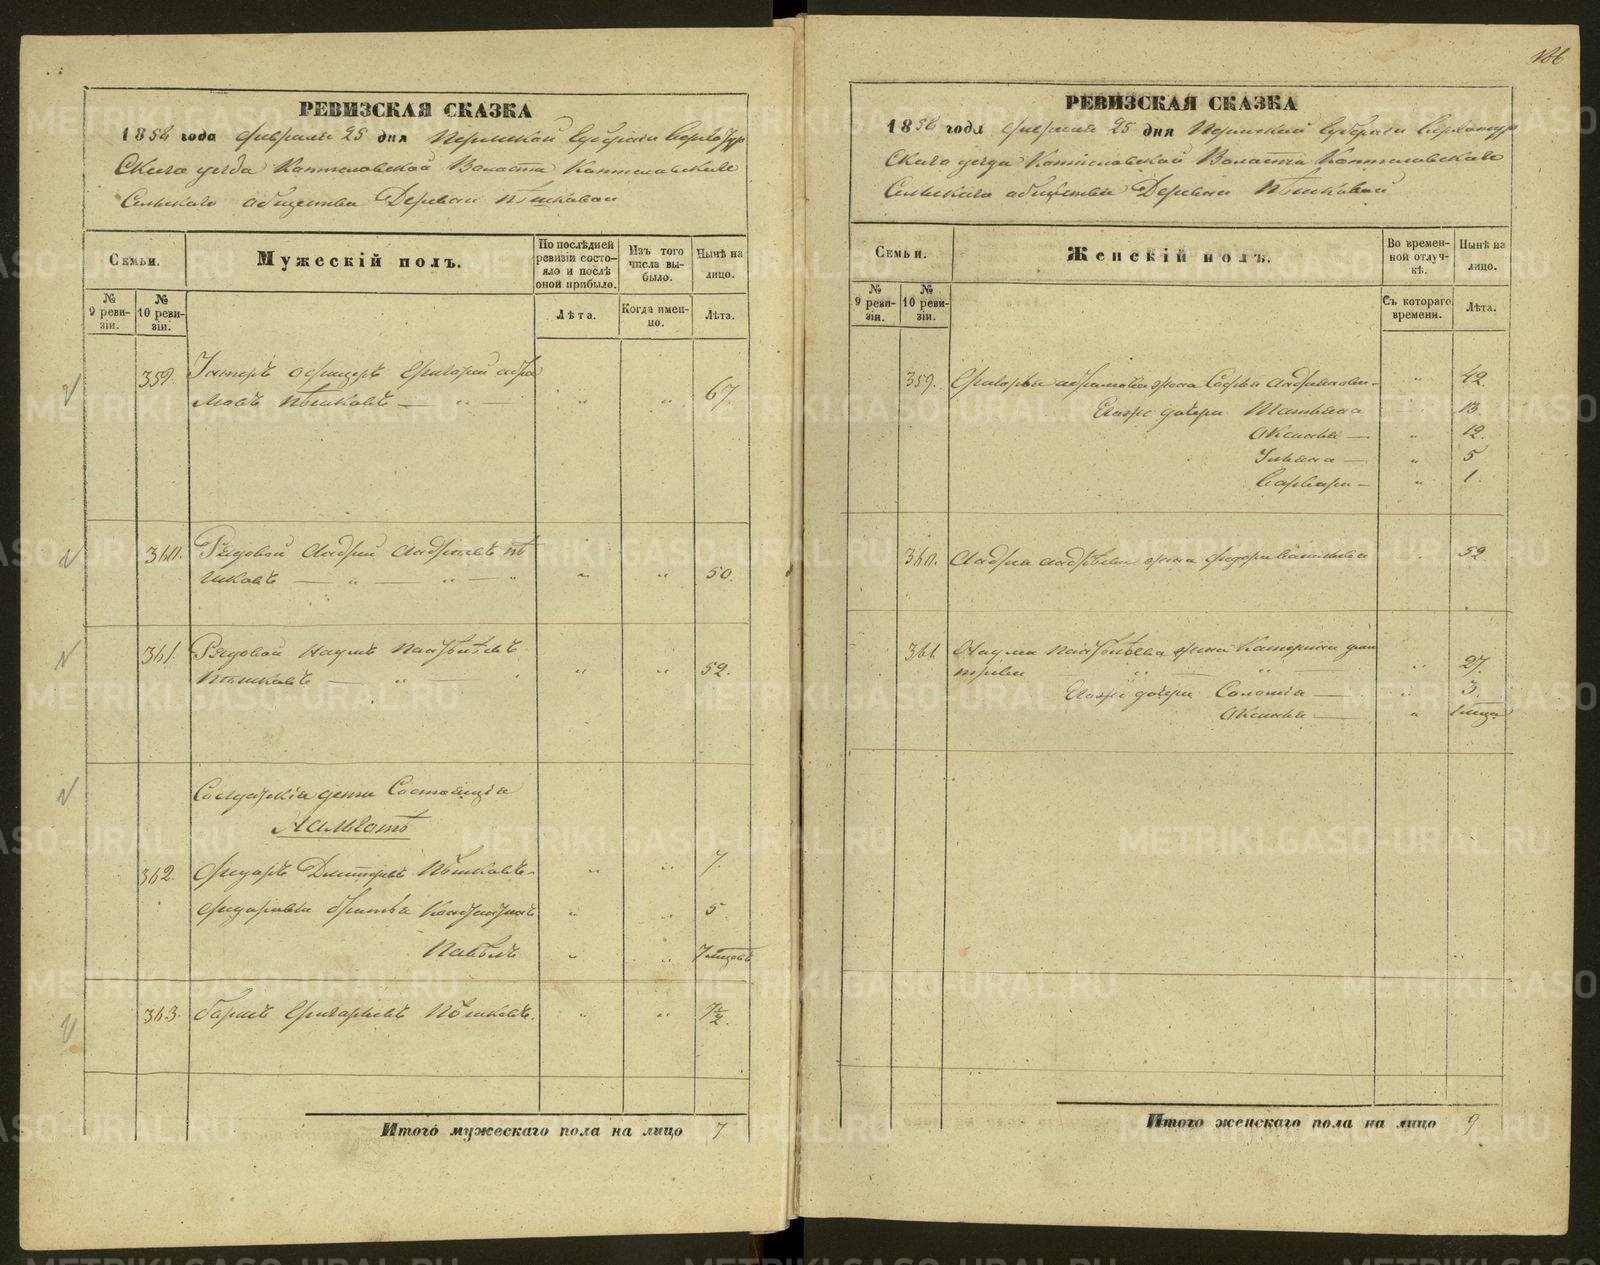 186
РЕВИЗСКАЯ СКАЗКА
1858 года Февраля 25 дня Пермской Губернии Верхотур
скаго уезда Коптеловской Волости Коптеловскаго
Сельскаго общества Деревни Пѣшковой
Семьи.
Мужескій полъ.
По послѣдней ревизіи состояло и послѣ оной прибыло.
Изъ того числа выбыло.
Нынѣ на лицо.
№ 9 ревизіи.
№ 10 ревизіи.
Лѣта.
Когда именно.
Лѣта.
359. Унтеръ офицеръ Григорий Абра
мовъ Пѣшковъ — „ — „ „ 67.
360. Рядовой Андрий Андреевъ Пѣ
шковъ — „ — „ — „ „ „ 50.
361. Рядовой Наумъ
Пѣшковъ — „ — „ „ 52.
Солдатскія дети Состоящія
362. Федоръ Дмитриевъ Пѣшковъ „ „ 7.
Федоровы братья Кондратей „ „ 5
Павелъ „ „ 7 месецовъ
363. Григорьевъ Пѣшковъ. „ „ 7/2.
Итого мужескаго пола на лицо 7
РЕВИЗСКАЯ СКАЗКА
1858 года Февраля 25 дня Пермской Губернии Верхотур
скаго уезда Коптеловской Волости Коптеловскаго
Сельскаго общества Деревни Пѣшковой
Семьи.
Женскій полъ.
Во временной отлучкѣ.
Нынѣ на лицо.
№ 9 ревизіи.
№ 10 ревизіи.
Съ котораго времени.
Лѣта.
359. Григорья Абрамова жена Софья „ 42
Егоже дочери Татьяна „ 13.
Оксинья — „ 12.
Ульяна — „ 5
Варвара — „ 1.
360. Андрея Андреева жена Федора Васильева „ 52
361. Наума жена Катерина Дми
триева „ „ „ 27.
Егоже дочери Соломія — „ 3.
Оксинья — „ 1 месяц
Итого женскаго пола на лицо 9
METRIKI.GASO-URAL.RU